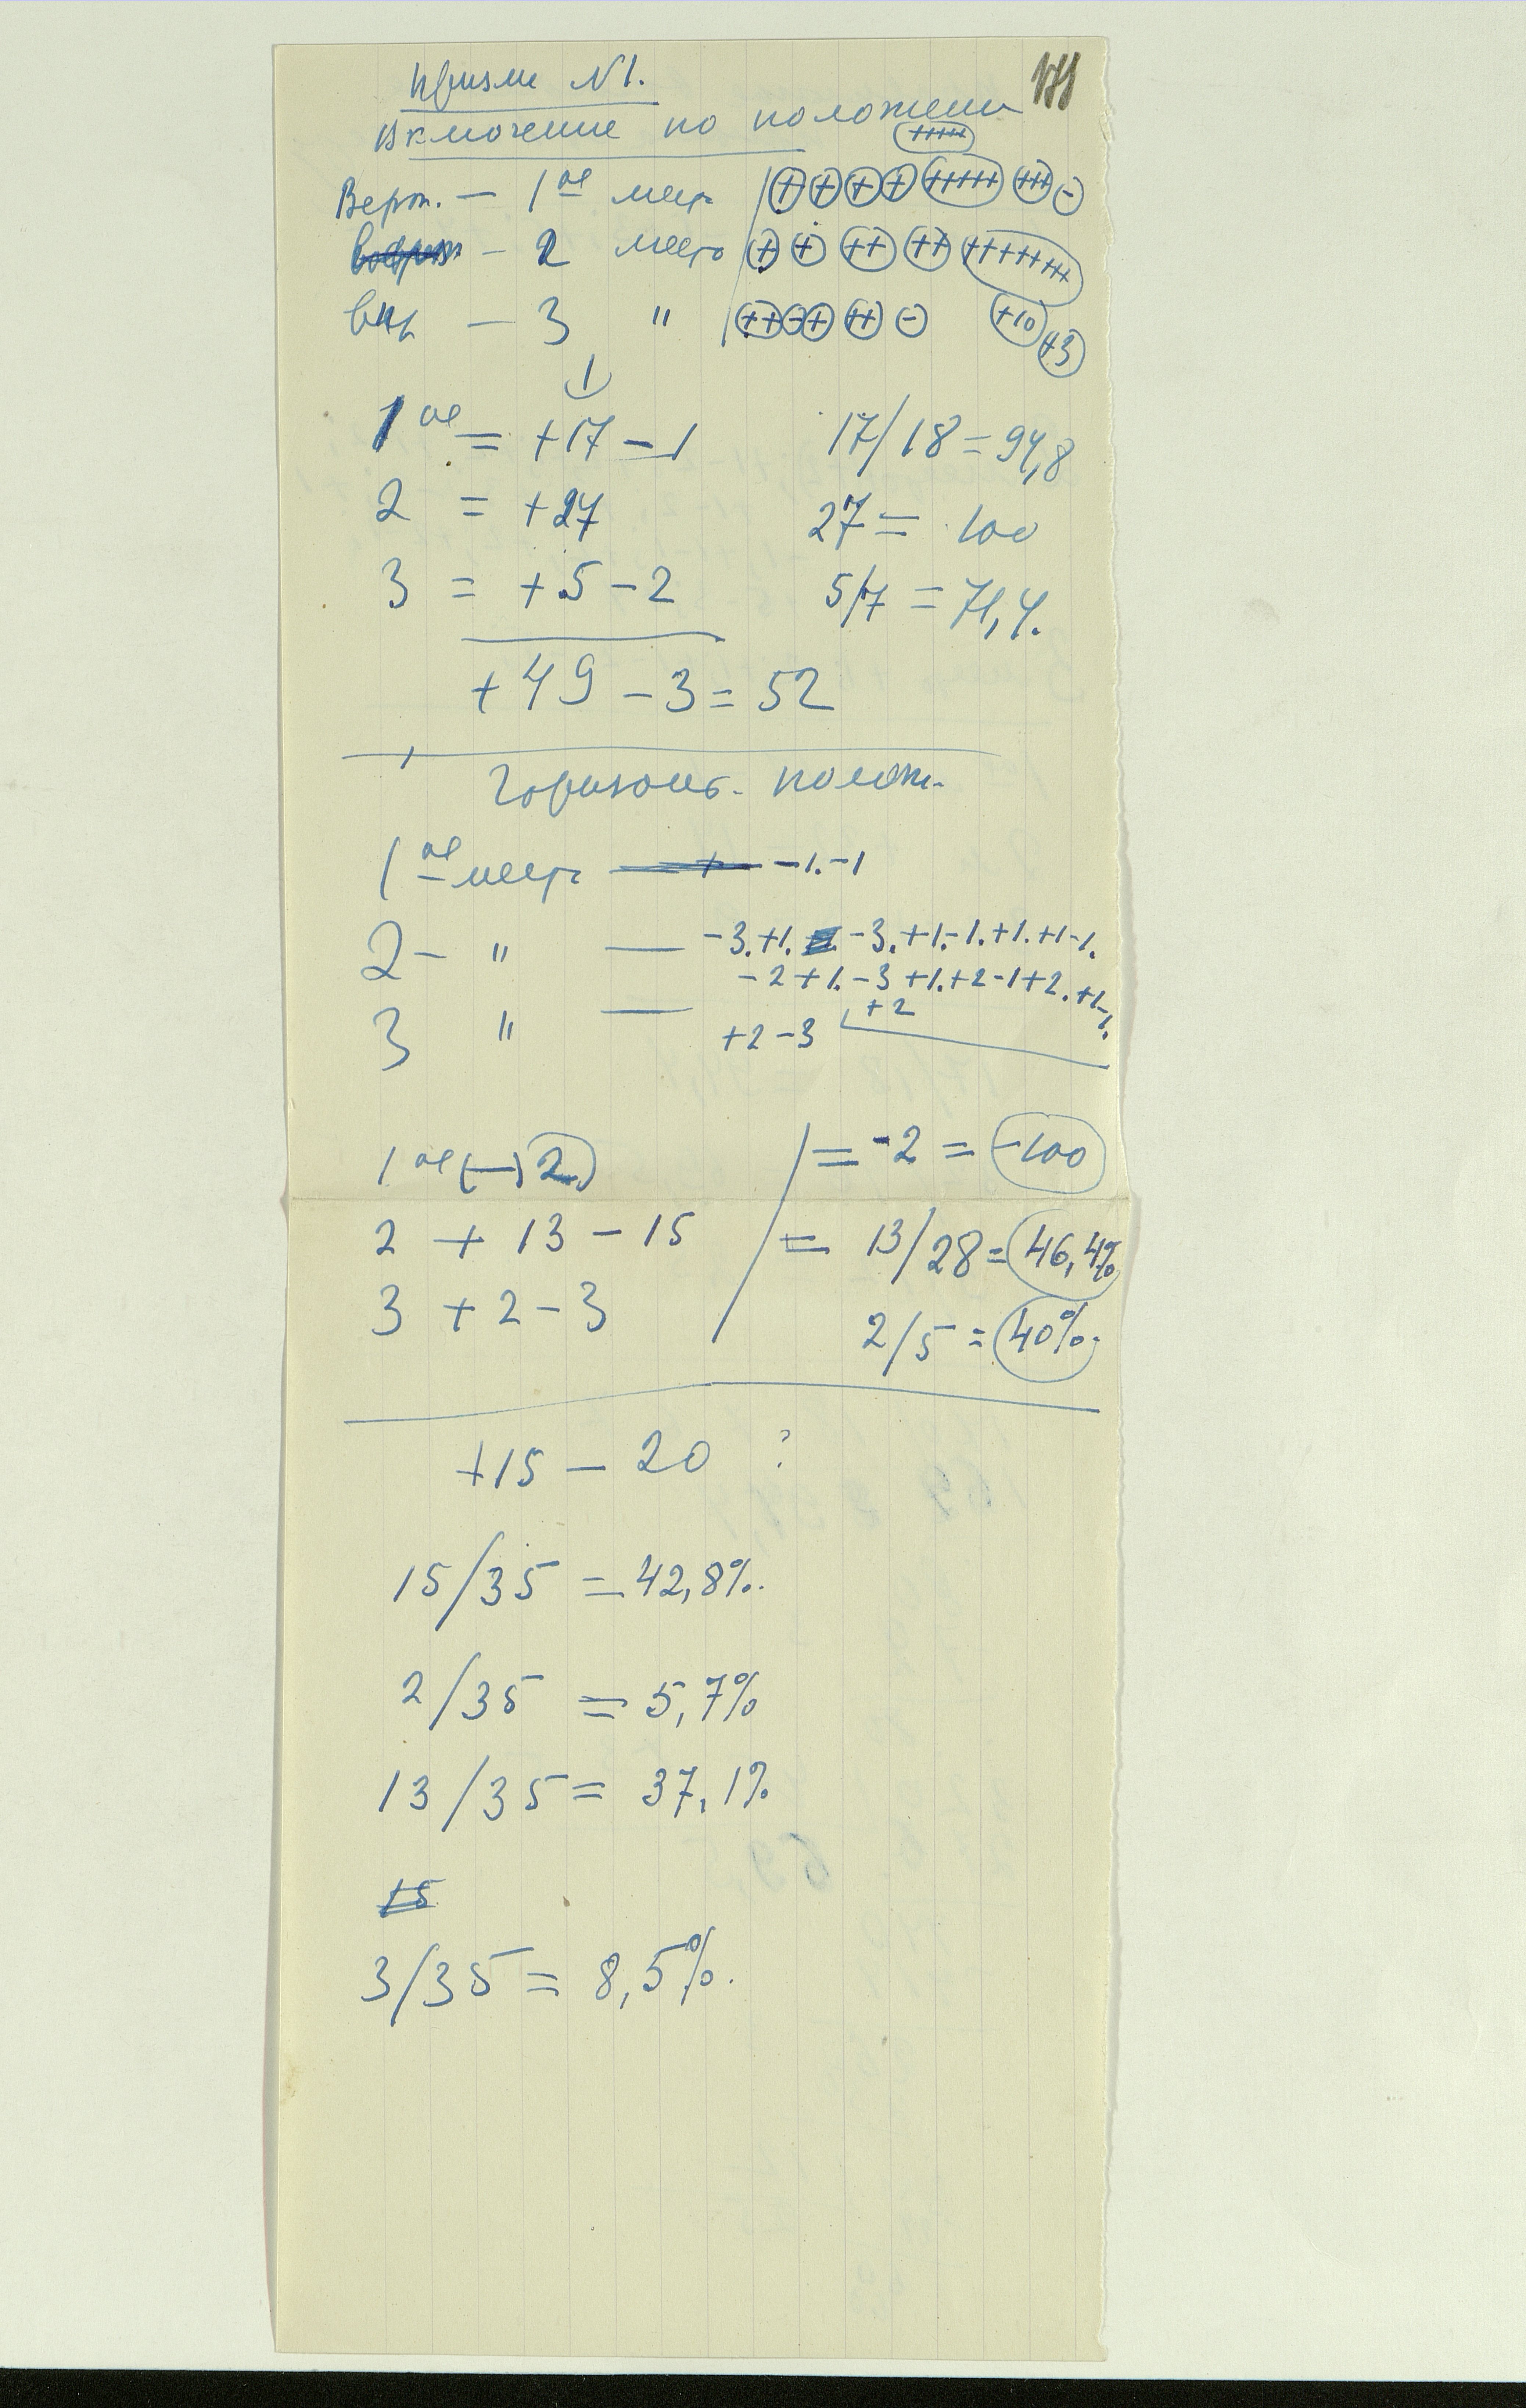 Призма N1.
Включение по положени
+++++
Верт. — 1ое место + + + + +++++ +++ -
- 2 место + + ++ ++ ++++++++
— 3 " ++ - + ++ - +10
+3
1
1ое = +17 - 1 17/18 = 94,8
2 = +27 27 = 100
3 = +5 - 2 5/7 = 71,4.
+49 - 3 = 52
Горизонт. полож.
1ое место — -1. -1
2 - " — -3. +1. -3. +1. -1. +1. +1 -1.
-2 +1. -3 +1. +2 -1 +2. +1 -1.
+2
3 " — +2 -3
1ое (—) 2 = -2 = -100
2 + 13 - 15 = 13/28 = 46,4%
3 + 2 - 3 2/5 = 40%.
+15 - 20 ?
15/35 = 42,8%.
2/35 = 5,7%
13/35 = 37,1%
15
3/35 = 8,5%.